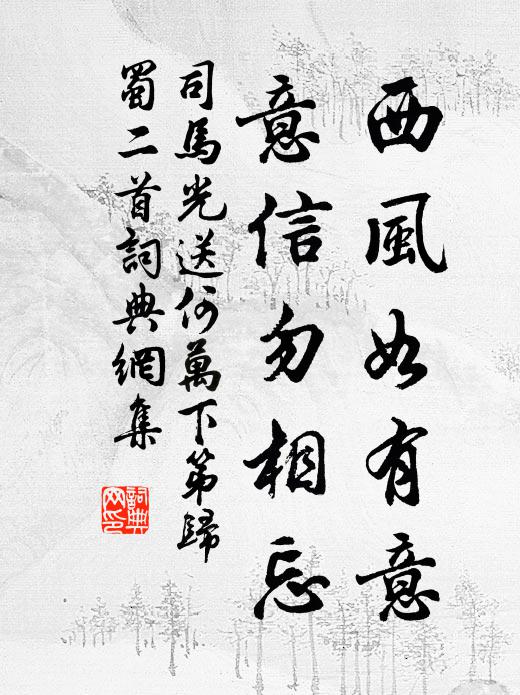 西風如有意
意信勿相忘
司馬光送何萬下第歸
蜀二首詞典網集
詞典
网印